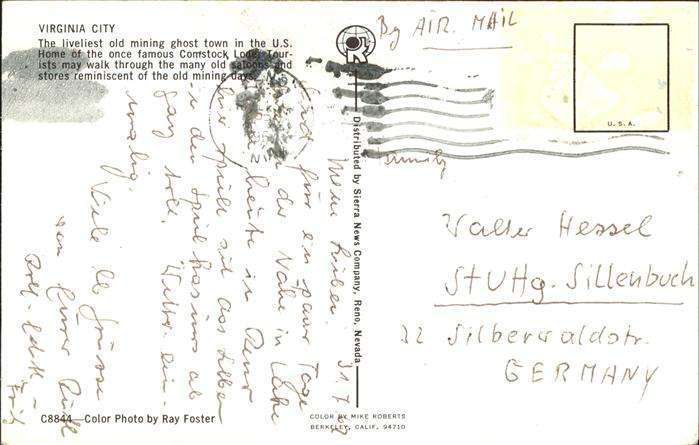 VIRGINIA CITY
The liveliest old mining ghost town in the U.S.
Home of the once famous Comstock Lode. Tour-
ists may walk through the many old saloons and
stores reminiscent of the old mining days.
By AIR MAIL
U.S.A.
Distributed by Sierra News Company, Reno, Nevada
Meine Lieben.
Sind für ein paar Tage
in der Nähe in Lake
heute in Reno
hier spielt sich das Leben
in den Spielkasinos ab
ganz toll.
malig.
Viele lb Grüsse
von Eurer
Walter Hessel
Stuttg. Sillenbuch
32 Silberwaldstr.
GERMANY
C8844—Color Photo by Ray Foster
COLOR BY MIKE ROBERTS
BERKELEY, CALIF. 94710